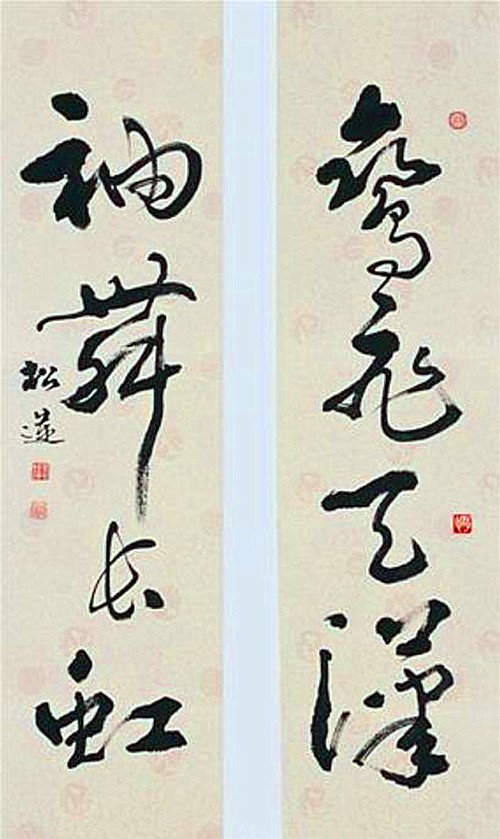 鸾飞天汉
袖舞长虹
松莲